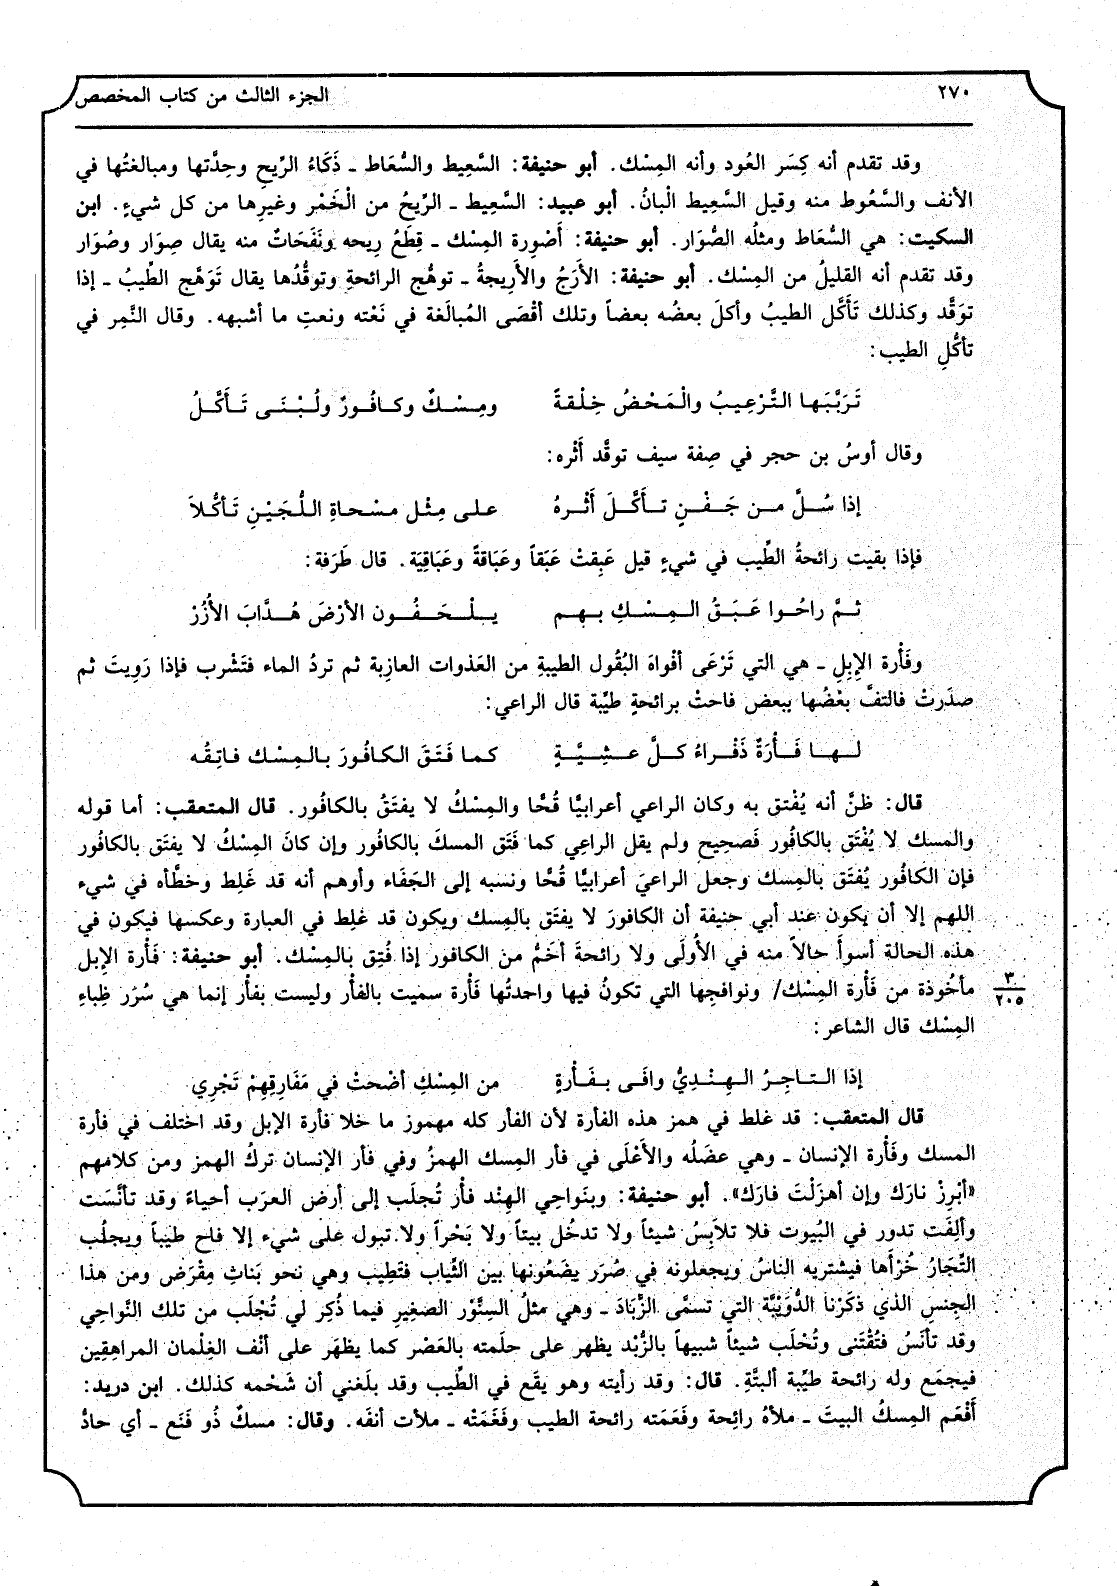 ٢٧٠
الجزء الثالث من كتاب المخصص
وقد تقدم أنه كِسَر العُود وأنه المِسْك. أبو حنيفة: السَّعِيط والسُّعَاط ـ ذَكَاءُ الرِّيحِ وحِدَّتها ومبالغتُها في
الأنف والسَّعُوط منه وقيل السَّعِيط الْبانُ. أبو عبيد: السَّعِيط ـ الرِّيحُ من الْخَمْر وغيرِها من كل شيءٍ. ابن
السكيت: هي السُّعَاط ومثلُه الصُّوَار. أبو حنيفة: أَصْوِرة المِسْك ـ قِطَعُ رِيحه ونَفَحَاتٌ منه يقال صِوَار وصُوَار
وقد تقدم أنه القليلُ من المِسْك. أبو حنيفة: الأَرَجُ والأَرِيجةُ ـ توهُّج الرائحةِ وتوقُّدُها يقال تَوَهَّج الطِّيبُ ـ إذا
توَقَّد وكذلك تَأَكَّل الطيبُ وأكلَ بعضُه بعضاً وتلك أقْصَى المُبالَغة في نَعْته ونعتِ ما أشبهه. وقال النَّمِر في
تأكُّلِ الطيب:
تَرَبَّبَها التَّرْعِيبُ والْمَحْضُ خِلْقةً ومِسْكٌ وكافُورٌ ولُبْنَى تَأَكَّلُ
وقال أوسُ بن حجر في صِفة سيف توقَّد أَثْره:
إذا سُلَّ من جَفْنٍ تأَكَّلَ أَثْرهُ على مِثْل مسْحاةِ اللُّجَيْنِ تَأكُّلاَ
فإذا بقيت رائحةُ الطِّيب في شيءٍ قيل عَبِقتْ عَبَقاً وعَبَاقةً وعَبَاقِيَة. قال طَرَفة:
ثمَّ راحُوا عَبَقُ المِسْكِ بهم يلْحَفُون الأرْضَ هُدَّابَ الأُزُرْ
وفَأْرة الإِبِلِ ـ هي التي تَرْعَى أفْواهَ البُقُول الطيبةِ من العَذوات العازِبة ثم تردُ الماء فتَشْرب فإذا رَوِيتَ ثم
صدَرتْ فالتفَّ بعْضُها ببعض فاحتْ برائحةٍ طيِّبة قال الراعي:
لها فَأْرَةٌ ذَفْراءُ كلَّ عشِيَّةٍ كما فَتَقَ الكافُورَ بالمِسْك فاتِقُه
قال: ظنَّ أنه يُفْتق به وكان الراعي أعرابيًّا قُحًّا والمِسْكُ لا يفتَقُ بالكافُور. قال المتعقب: أما قوله
والمسك لا يُفْتَق بالكافُور فَصحِيح ولم يقل الراعِي كما فَتَق المسكَ بالكافُور وإن كانَ المِسْكُ لا يفتَق بالكافُور
فإن الكافُور يُفتَق بالمِسك وجعل الراعيَ أعرابيًّا قُحًّا ونسبه إلى الجَفَاء وأوهم أنه قد غَلِط وخطَّأه في شيء
اللهم إلا أن يكون عند أبي حنيفة أن الكافورَ لا يفتَق بالمِسك ويكون قد غلِط في العبارة وعكسها فيكون في
هذه الحالة أسوأَ حالاً منه في الأُولَى ولا رائحةَ أخَمُّ من الكافور إذا فُتِق بالمِسْك. أبو حنيفة: فَأْرة الإبل
مأخُوذة من فَأْرة المِسْك/ ونوافجِها التي تكونُ فيها واحدتُها فَأرة سميت بالفأر وليست بفأر إنما هي سُرَر ظِباءِ
٣
٢٠٥
المِسْك قال الشاعر:
إذا التاجِرُ الهِنْديُّ وافَى بفَأْرةٍ من المِسْكِ أضْحتْ في مَفَارِقِهِمْ تَجْرِي
قال المتعقب: قد غلط في همز هذه الفأرة لأن الفأر كله مهموز ما خلا فأرة الإبل وقد اختلف في فأرة
المسك وفَأْرة الإنسان ـ وهي عضَلُه والأَعْلَى في فأر المِسك الهمزُ وفي فأر الإنسان تركُ الهمز ومن كلامهم
«أبْرِزْ نارَكَ وإن أهزَلْتَ فارَك». أبو حنيفة: وبنَواحِي الهِنْد فأْر تُجلَب إلى أرض العرَب أحياءً وقد تأنَّسَت
وألِفَت تدور في البُيوت فلا تلابِسُ شيئاً ولا تدخُل بيتاً ولا بَحْراً ولا تبول على شيء إلا فاح طيباً ويجلُب
التِّجَارُ خُرْأها فيشتريه الناسُ ويجعلونه في صُرَر يضَعُونها بين الثِّياب فتَطِيب وهي نحو بَناتِ مِقْرَض ومن هذا
الجِنسِ الذي ذكَرْنا الدُّوَيْبَّة التي تسمَّى الزَّبَادَ ـ وهي مثلُ السِنَّوْر الصغيرِ فيما ذُكِر لي تُجْلَب من تلك النَّواحِي
وقد تأنَسُ فتُقْتَنى وتُحْلَب شيئاً شبيهاً بالزُّبْد يظهر على حلَمته بالعَصْر كما يظهَر على أنْف الغِلْمان المراهِقِين
فيجمَع وله رائحة طيِّبة ألبتَّةِ. قال: وقد رأيته وهو يقَع في الطِّيب وقد بلَغني أن شَحْمه كذلك. ابن دريد:
أَفْعَم المِسكُ البيتَ ـ ملأهُ رائِحة وفَعَمَته رائحة الطيب وفَغَمَتْه ـ ملأت أنفَه. وقال: مسكٌ ذُو فَنَع ـ أي حادُّ